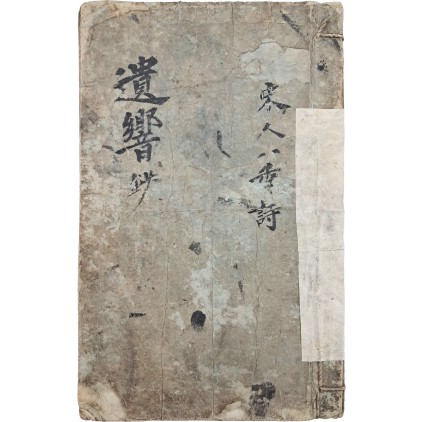 人八詩
遺響鈔